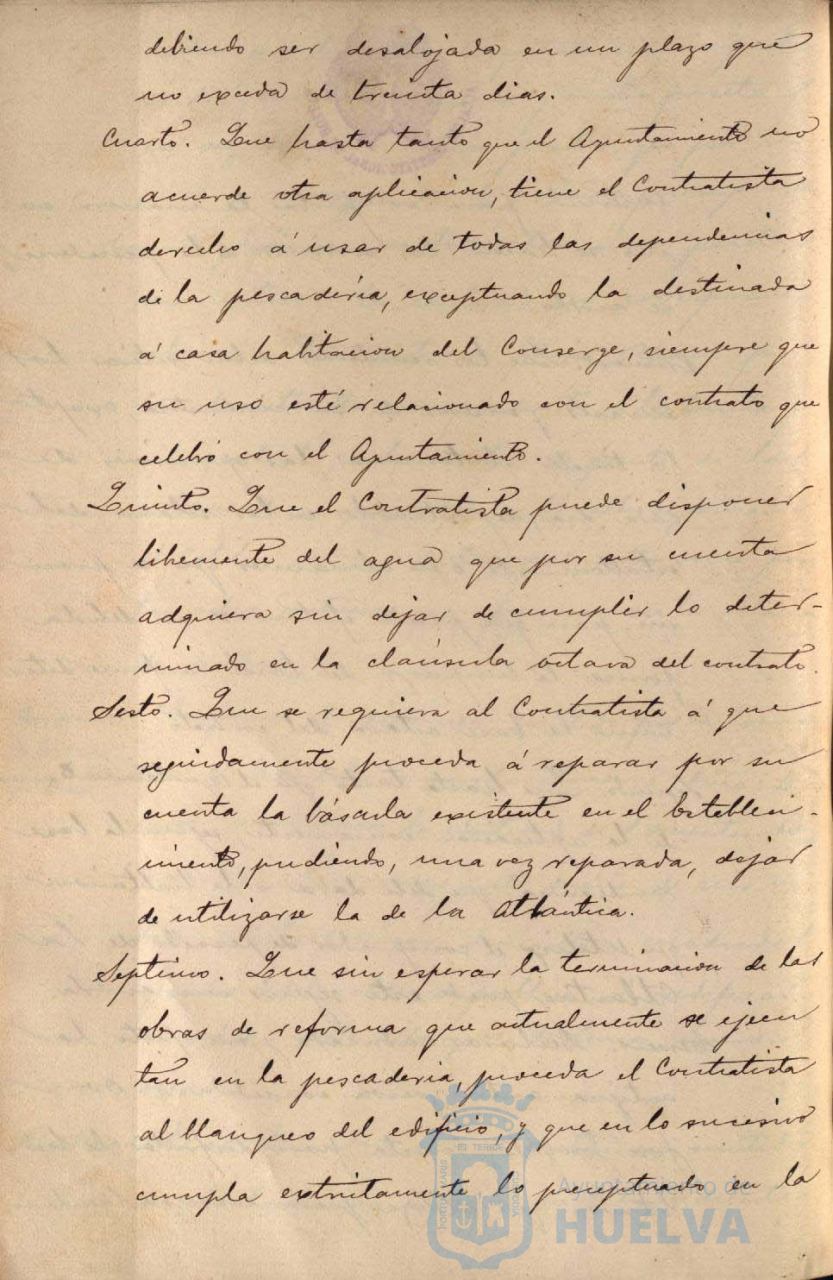 debiendo ser desalojada en un plazo que
no exceda de treinta dias.
Cuarto. Que hasta tanto que el Ayuntamiento no
acuerde otra aplicacion, tiene el Contratista
derecho á usar de todas las dependencias
de la pescadéria, exceptuando la destinada
á casa habitacion del Conserge, siempre que
su uso esté relacionado con el contrato que
celebró con el Ayuntamiento.
Quinto. Que el Contratista puede disponer
libremente del agua que por su cuenta
adquiera sin dejar de cumplir lo deter-
minado en la claúsula octava del contrato.
Sesto. Que se requiera al Contratista á que
seguidamente proceda á reparar por su
cuenta la báscula existente en el Estableci-
miento, pudiendo, una vez reparada, dejar
de utilizarse la de la Atlántica.
Septimo. Que sin esperar la terminacion de las
obras de reforma que actualmente se ejecu
tan en la pescaderia, proceda el Contratista
al blanqueo del edificio, y que en lo sucesivo
cumpla extrictamente lo preceptuado en la
Ayuntamiento de
HUELVA